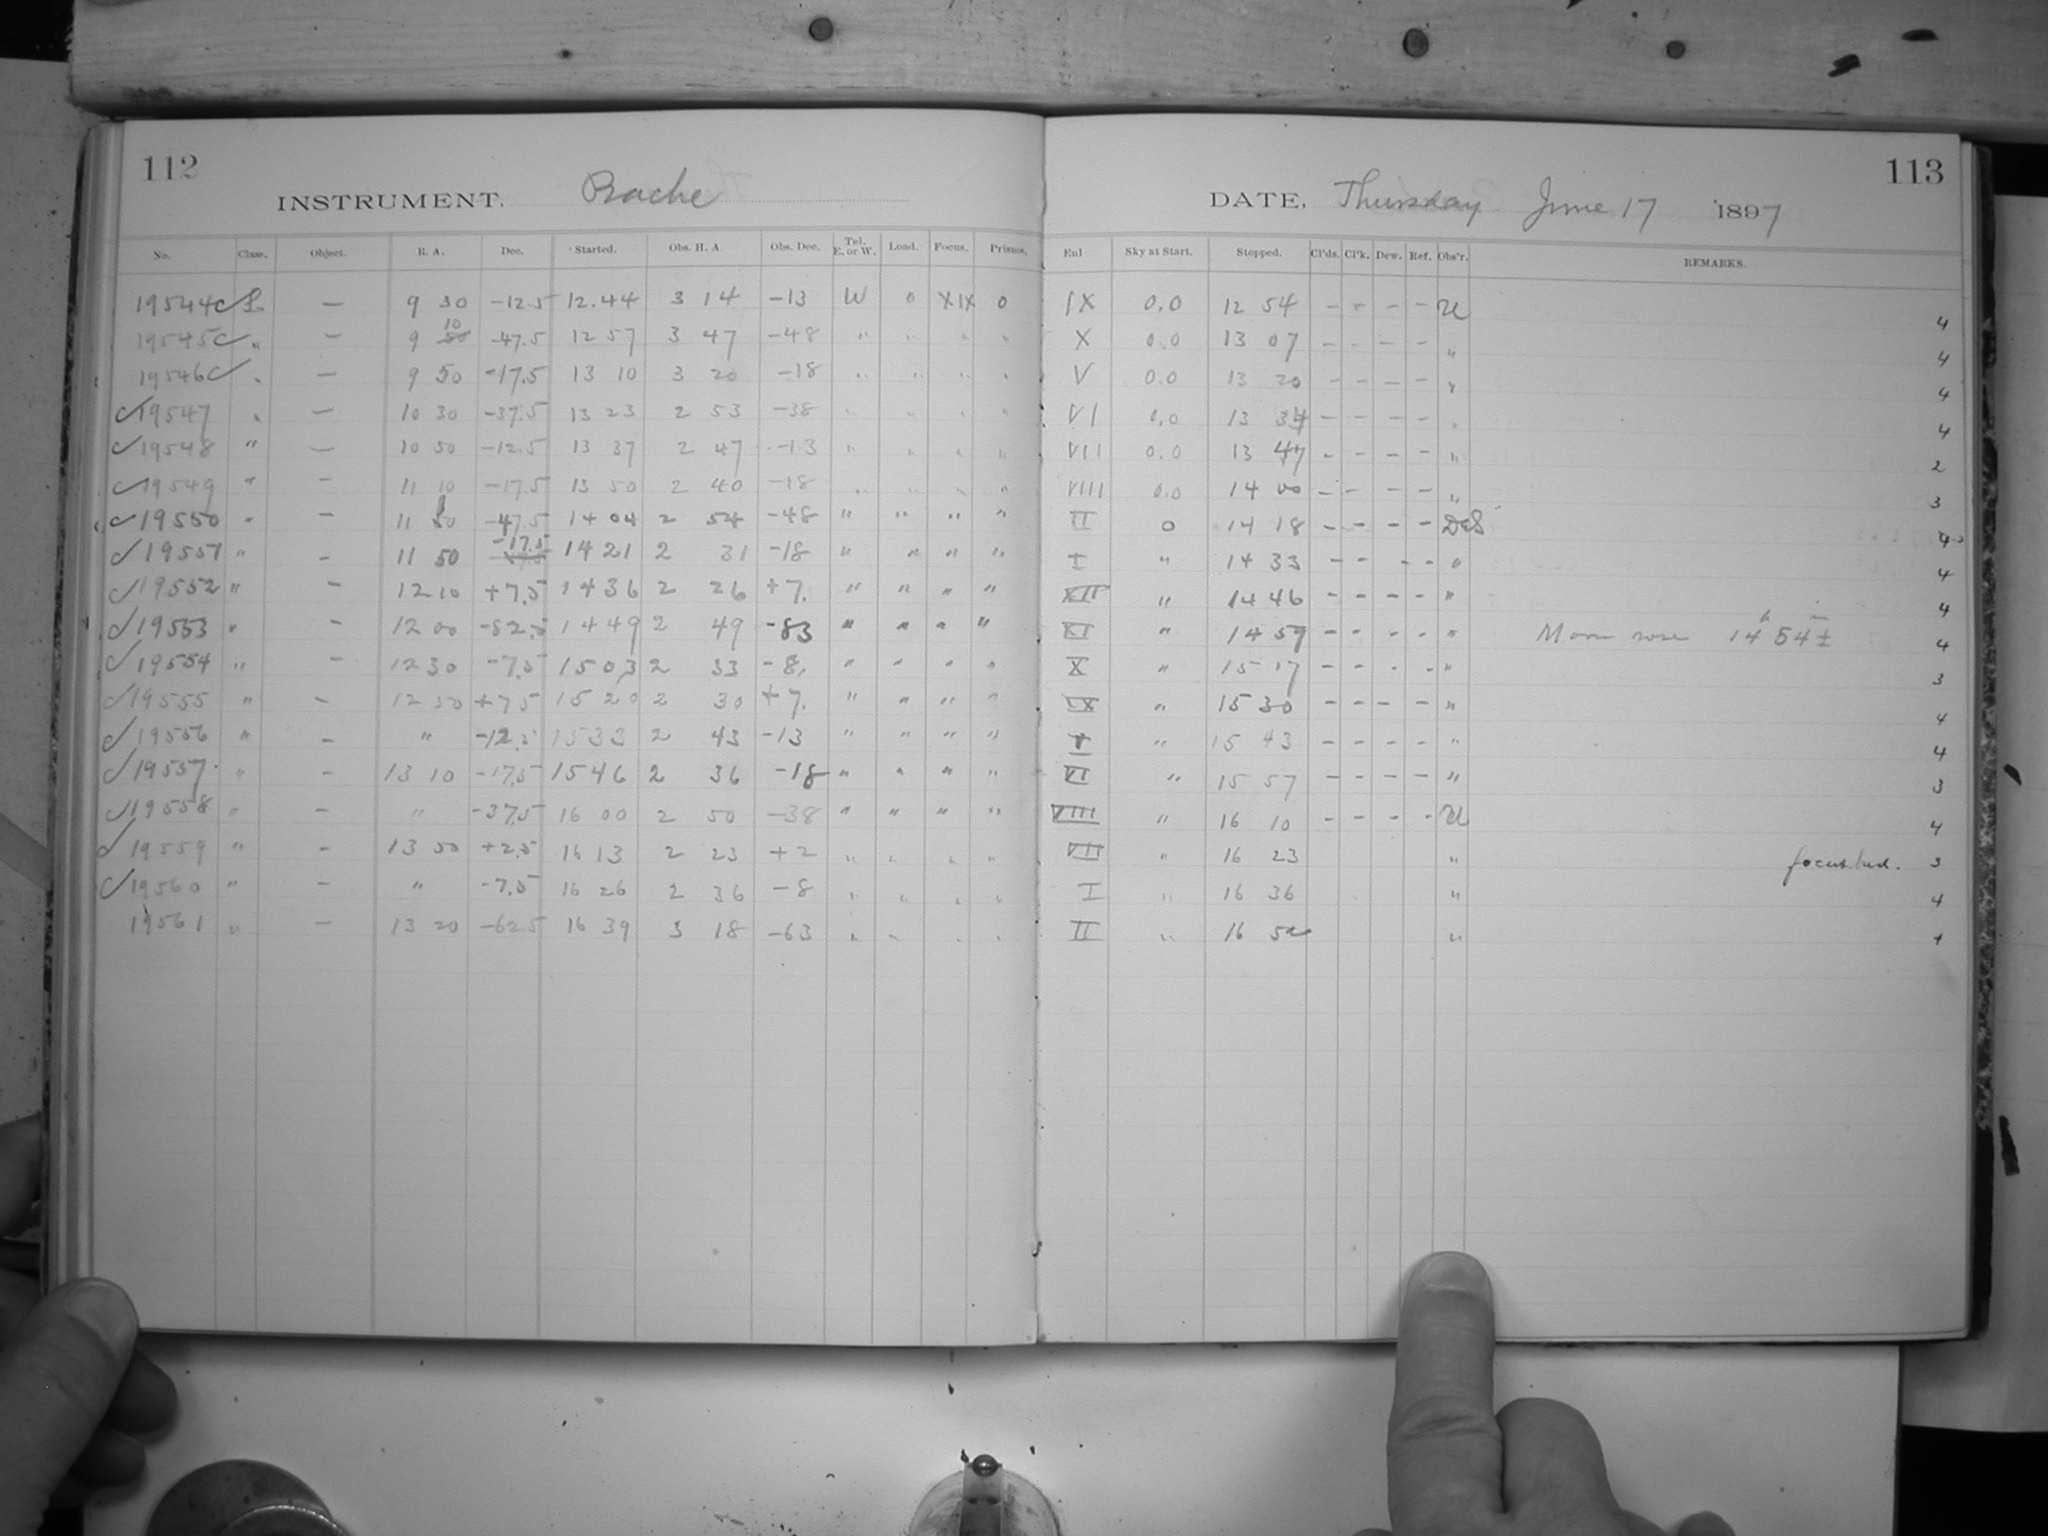 112
INSTRUMENT. Bache
No. Class. Object. R. A. Dec. Started. Obs. H. A. Obs. Dec. Tel. E. or W. Load. Focus. Prisms.
19544 L — 9 30 -12.5 12.44 3 14 -13 W 0 XIX 0
19545 " — 9 10 -47.5 12 57 3 47 -48 " " " "
19546 " — 9 50 -17.5 13 10 3 20 -18 " " " "
19547 " — 10 30 -37.5 13 23 2 53 -38 " " " "
19548 " — 10 50 -12.5 13 37 2 47 -13 " " " "
19549 " — 11 10 -17.5 13 50 2 40 -18 " " " "
19550 " — 11 10 -47.5 14 04 2 54 -48 " " " "
19551 " — 11 50 -17.5 14 21 2 31 -18 " " " "
19552 " — 12 10 +7.5 14 36 2 26 +7. " " " "
19553 " — 12 00 -82.5 14 49 2 49 -83 " " " "
19554 " — 12 30 -7.5 15 03 2 33 -8. " " " "
19555 " — 12 50 +7.5 15 20 2 30 +7. " " " "
19556 " — " -12.5 15 33 2 43 -13 " " " "
19557 " — 13 10 -17.5 15 46 2 36 -18 " " " "
19558 " — " -37.5 16 00 2 50 -38 " " " "
19559 " — 13 50 +2.5 16 13 2 23 +2 " " " "
19560 " — " -7.5 16 26 2 36 -8 " " " "
19561 " — 13 20 -62.5 16 39 3 18 -63 " " " "
113
DATE, Thursday June 17 1897
Enl Sky at Start. Stopped. Cl'ds. Cl'k. Dew. Ref. Obs'r. REMARKS.
IX 0.0 12 54 - - - - U 4
X 0.0 13 07 - - - - " 4
V 0.0 13 20 - - - - " 4
VI 0.0 13 34 - - - - " 4
VII 0.0 13 47 - - - - " 2
VIII 0.0 14 00 - - - - " 3
II 0 14 18 - - - - DeS 4
I " 14 33 - - - - " 4
XII " 14 46 - - - - " 4
XI " 14 59 - - - - " Moon rose 14h 54m ± 4
X " 15 17 - - - - " 3
IX " 15 30 - - - - " 4
V " 15 43 - - - - " 4
VI " 15 57 - - - - " 3
VIII " 16 10 - - - - U 4
VII " 16 23 " focus bad. 3
I " 16 36 " 4
II " 16 52 "